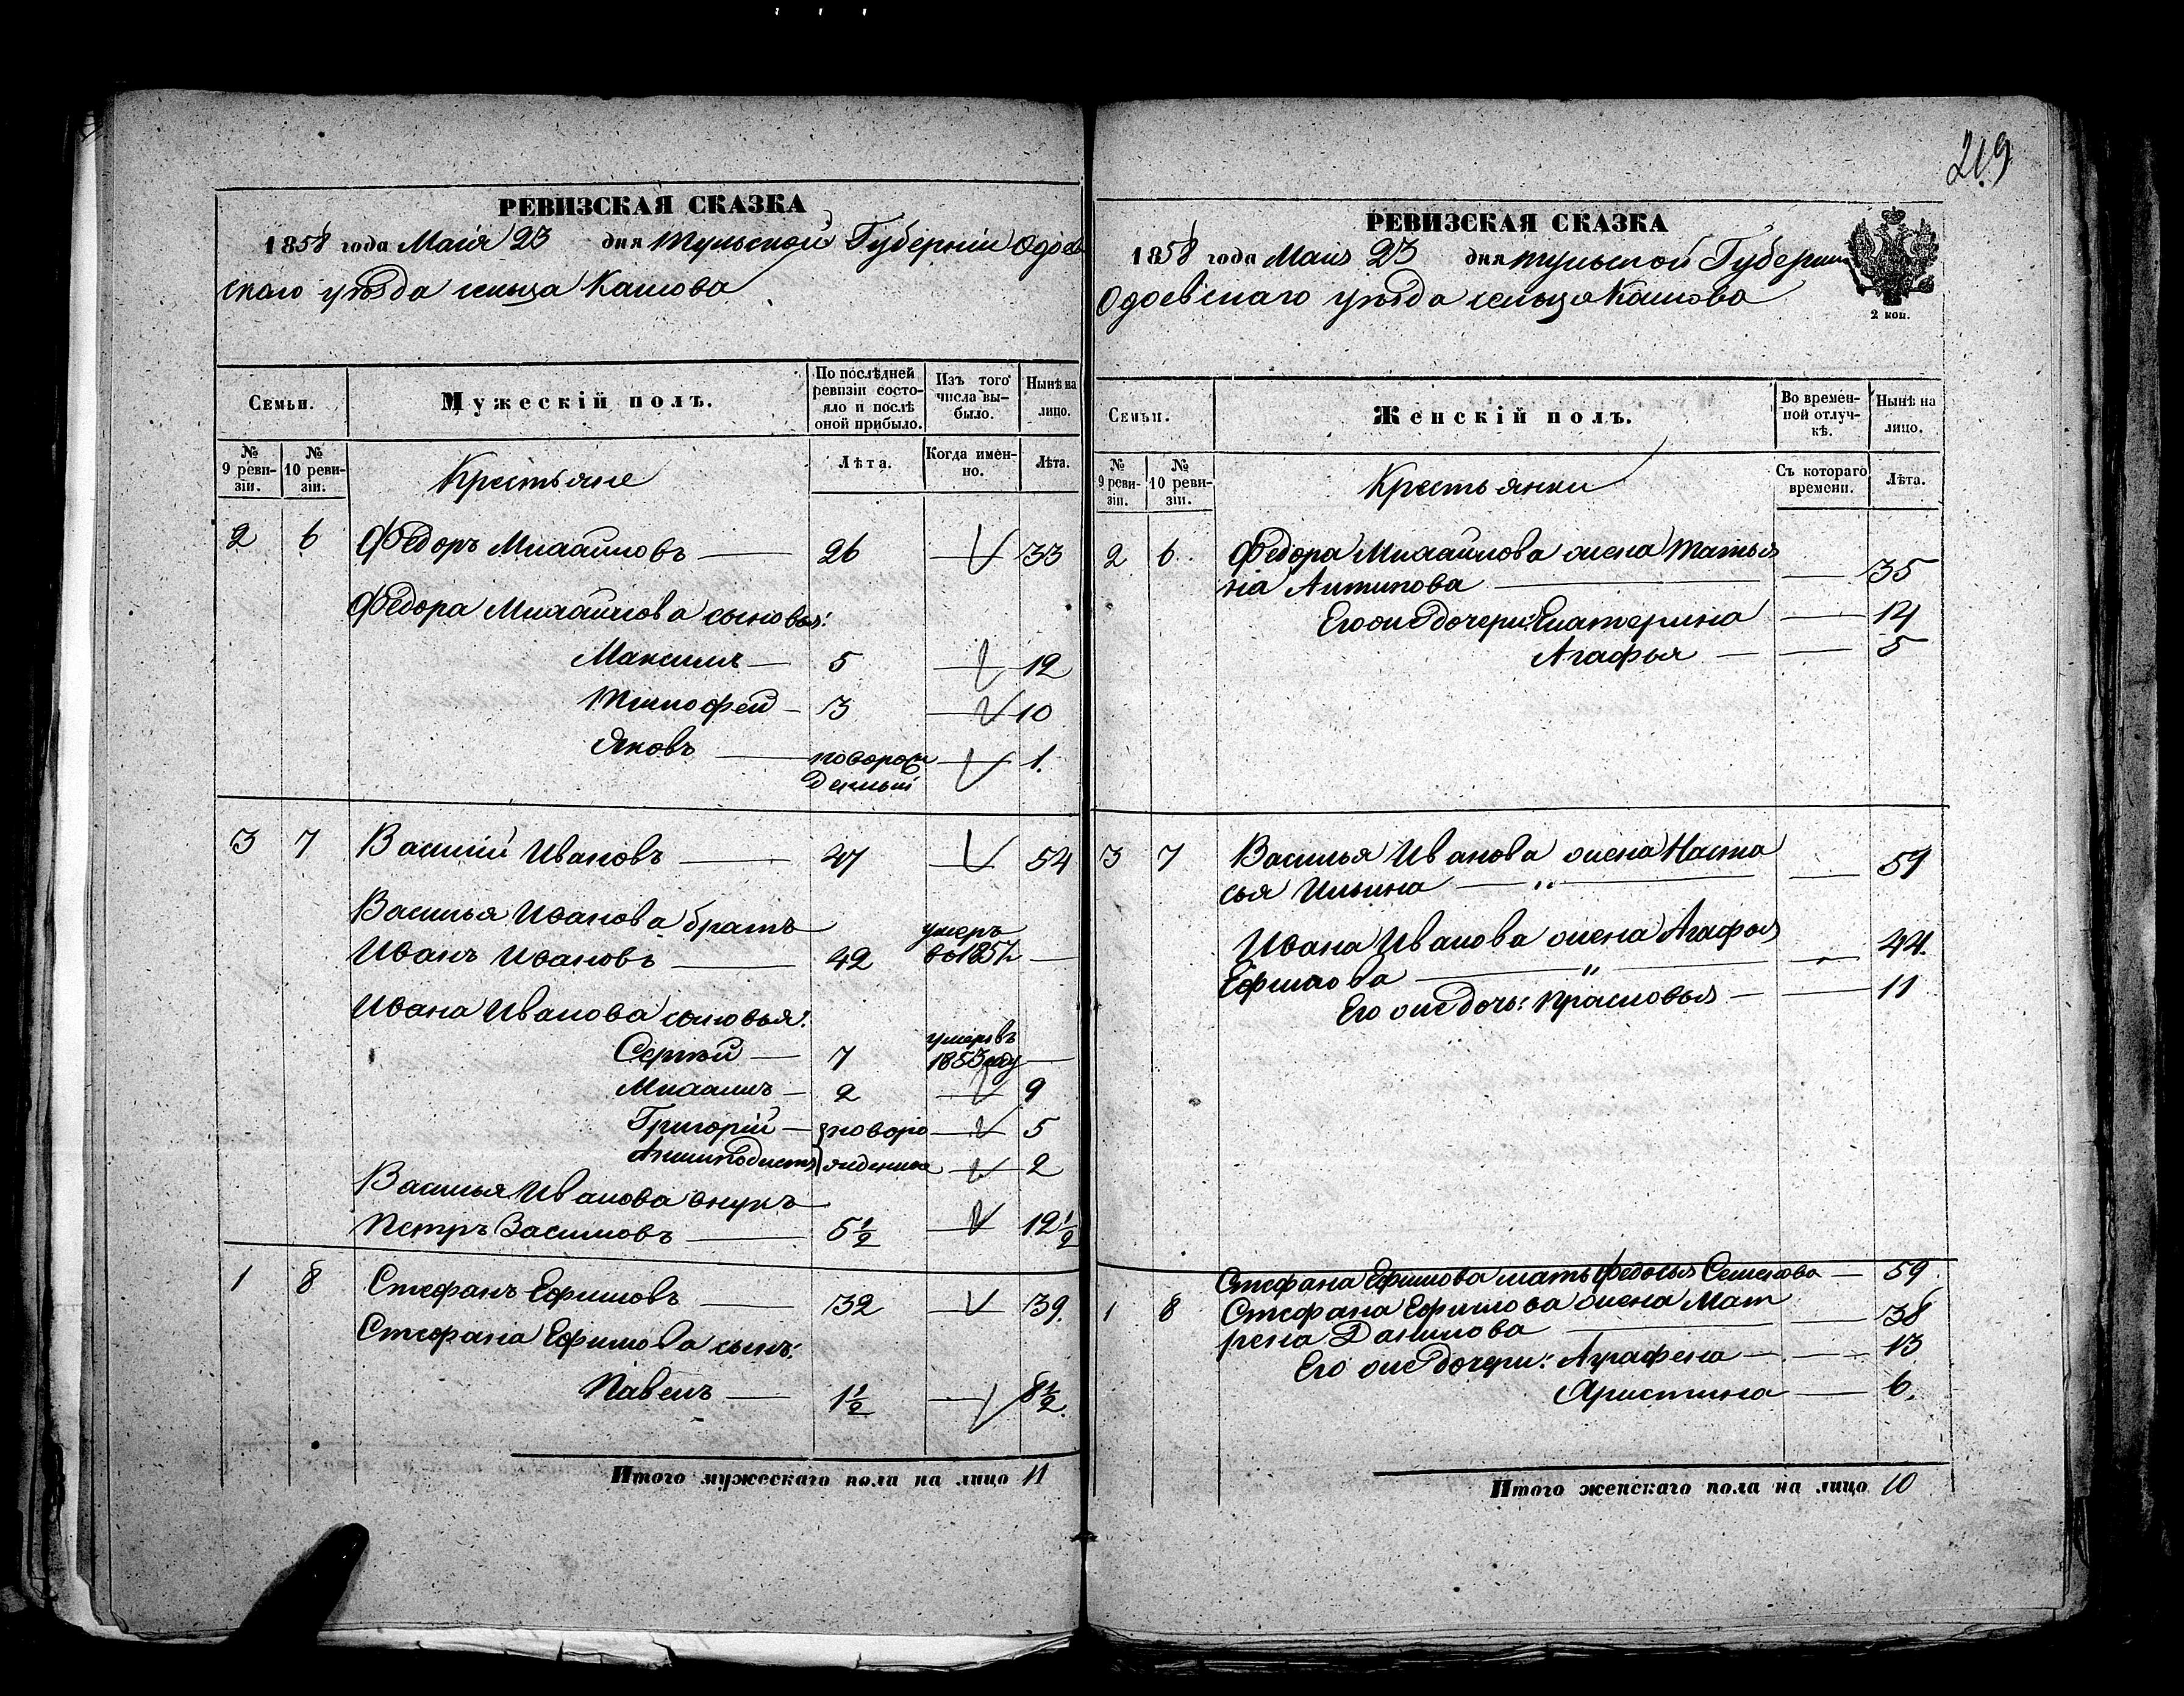 219
РЕВИЗСКАЯ СКАЗКА
1858 года Маія 23 дня Тульской Губерніи Одоев
скаго уѣзда сельца Кашова
Семьи.
Мужескій полъ.
По послѣдней ревизіи состояло и послѣ оной прибыло.
Изъ того числа выбыло.
Нынѣ на лицо.
№ 9 ревизіи.
№ 10 ревизіи.
Крестьяне
Лѣта.
Когда именно.
Лѣта.
2 6 Федоръ Михайловъ — 26 — 33
Федора Михайлова сыновья:
Максимъ — 5 — 12
Тимофей — 3 — 10
Яковъ — новорож — 1.
денный
3 7 Василій Ивановъ — 47 — 54
Василья Иванова братъ
умеръ
Иванъ Ивановъ — 42 въ 1857 —
Ивана Иванова сыновья:
умеръ въ
Сергѣй — 7 1853 году —
Михаилъ — 2 — 9
Григорій — новоро — 5
жденные — 2
Василья Иванова внукъ
Петръ Васильовъ — 5 1/2 — 12 1/2
1 8 Стефанъ Ефимовъ — 32 — 39.
Стефана Ефимова сынъ:
Павелъ — 1 1/2 — 8 1/2.
Итого мужескаго пола на лицо 11
РЕВИЗСКАЯ СКАЗКА
1858 года Маія 23 дня Тульской Губерніи
Одоевскаго уѣзда сельца Кашова
2 коп.
Семьи.
Женскій полъ.
Во временной отлучкѣ.
Нынѣ на лицо.
№ 9 ревизіи.
№ 10 ревизіи.
Крестьянки
Съ котораго времени.
Лѣта.
2 6. Федора Михайлова жена Татья
на Антипова — — 35
Его же дочери: Екатерина — 14
Агафья — — 5
3 7 Василья Иванова жена Наста
сья Ильина — " — — 59
Ивана Иванова жена Агафья
Ефимова — " — — 44.
Его же дочь: Прасковья — — 11
Стефана Ефимова мать Федосья Семенова — 59
1 8 Стефана Ефимова жена Мат
рена Данилова — — 38
Его же дочери: Аграфена — — 13
Христина — 6.
Итого женскаго пола на лицо 10